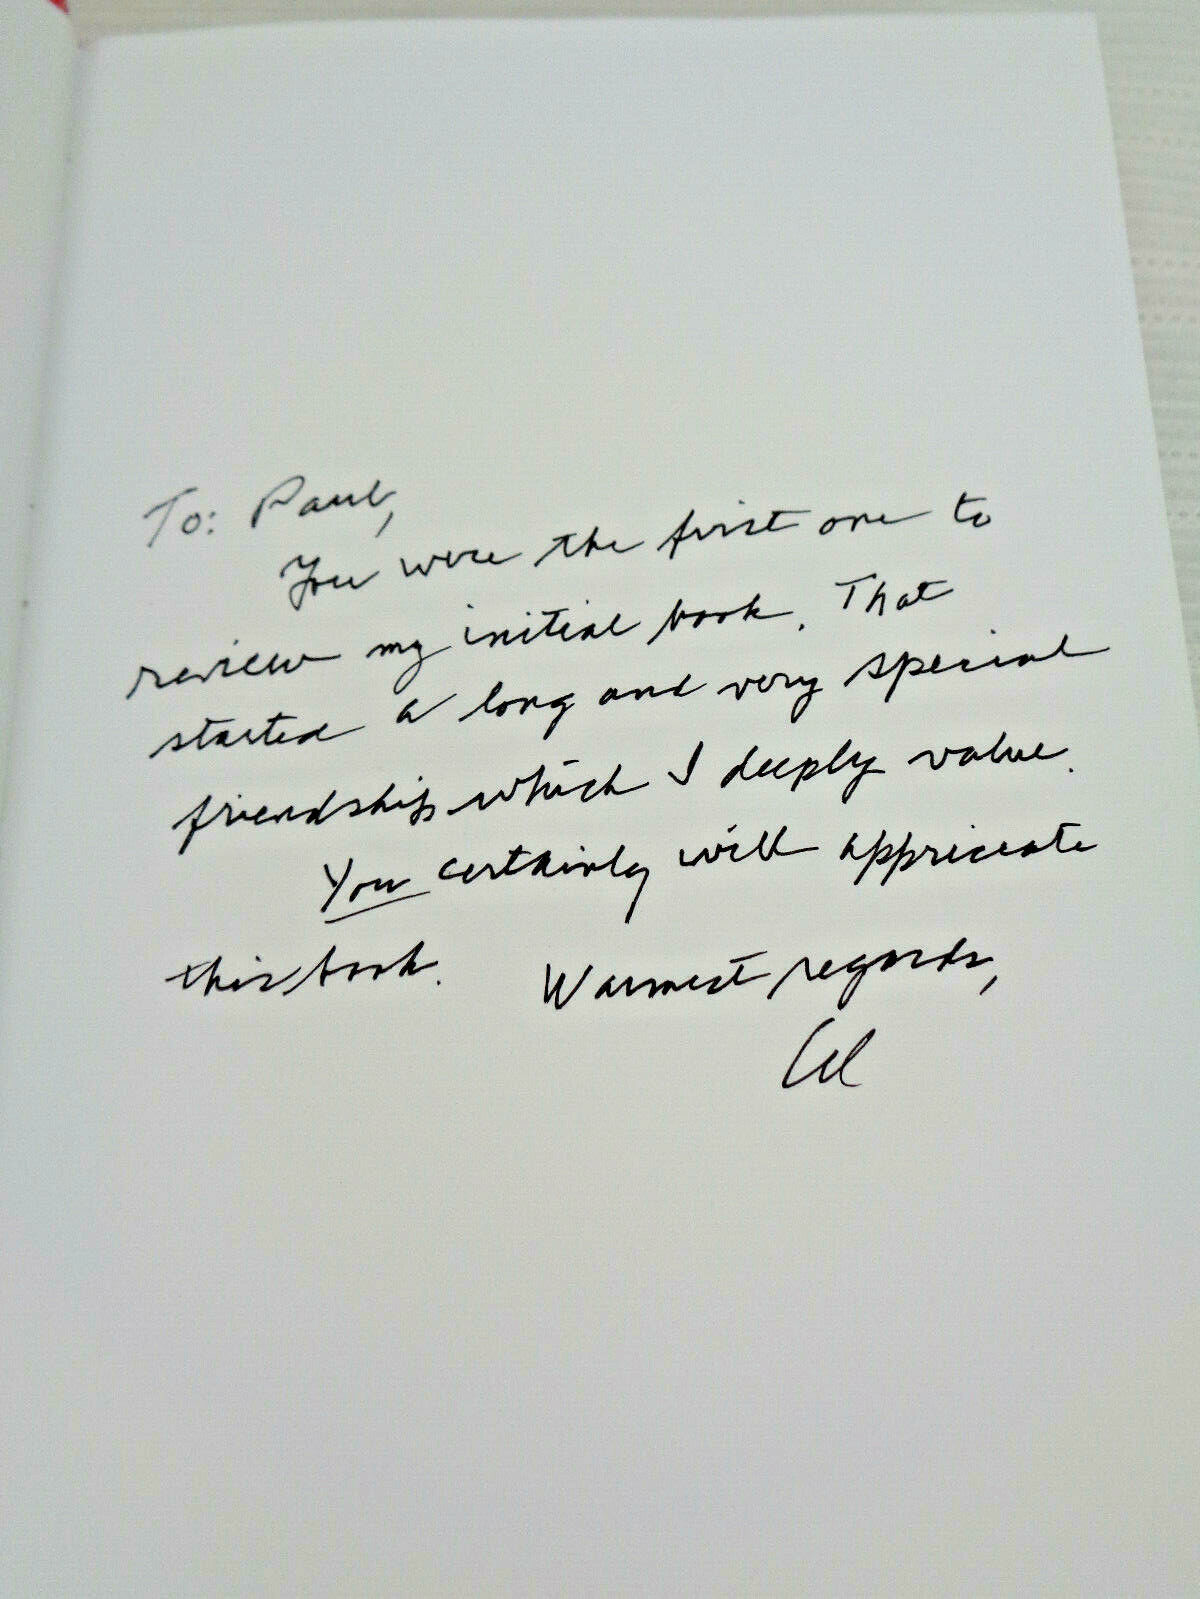 To: Paul,
You were the first one to
review my initial book. That
started a long and very special
friendship which I deeply value.
You certainly will appriceate
this book. Warmest regards,